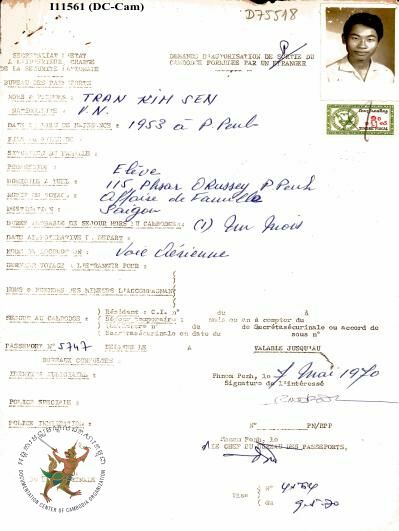 I11561 (DC-Cam)
D75518
SECRETARIAT D'ETAT
A L'INTERIEUR, CHARGE
DE LA SECURITE NATIONALE
DEMANDE D'AUTORISATION DE SORTIE DU
CAMBODGE FORMULEE PAR UN ETRANGER
BUREAU DES PASSEPORTS
NOMS & PRENOMS : TRAN KIM SEN
NATIONALITE : V.N.
DATE & LIEU DE NAISSANCE : 1953 à P. Penh
PROFESSION : Elève
DOMICILE ACTUEL : 115 Phsar ORussey P Penh
MOTIF DU VOYAGE : Affaire de Famille
DESTINATION : Saigon
DUREE PROBABLE DE SEJOUR HORS DU CAMBODGE : (1) Un Mois
DATE APPROXIMATIVE DEPART :
MODE DE LOCOMOTION : Voie Aérienne
DERNIER VOYAGE A L'ETRANGER POUR :
NOMS & PRENOMS DES MINEURS L'ACCOMPAGNANT
Résident : C.I. n° du à
SEJOUR AU CAMBODGE : Séjour temporaire : mois ou an à compter du
du de Secrétaséurinale ou accord de
Secrétaséurinale en date du sous n°
PASSEPORT N° 5747 DELIVRE LE A VALABLE JUSQU'AU
Phnom Penh, le 7 Mai 1970
Signature de l'intéressé
POLICE SPECIALE :
POLICE IMMIGRATION :
N° PN/BPP
Phnom Penh, le
LE CHEF DU BUREAU DES PASSEPORTS,
Visa N° 4254
du 9-5-70
DOCUMENTATION CENTER OF CAMBODIA ORGANIZATION